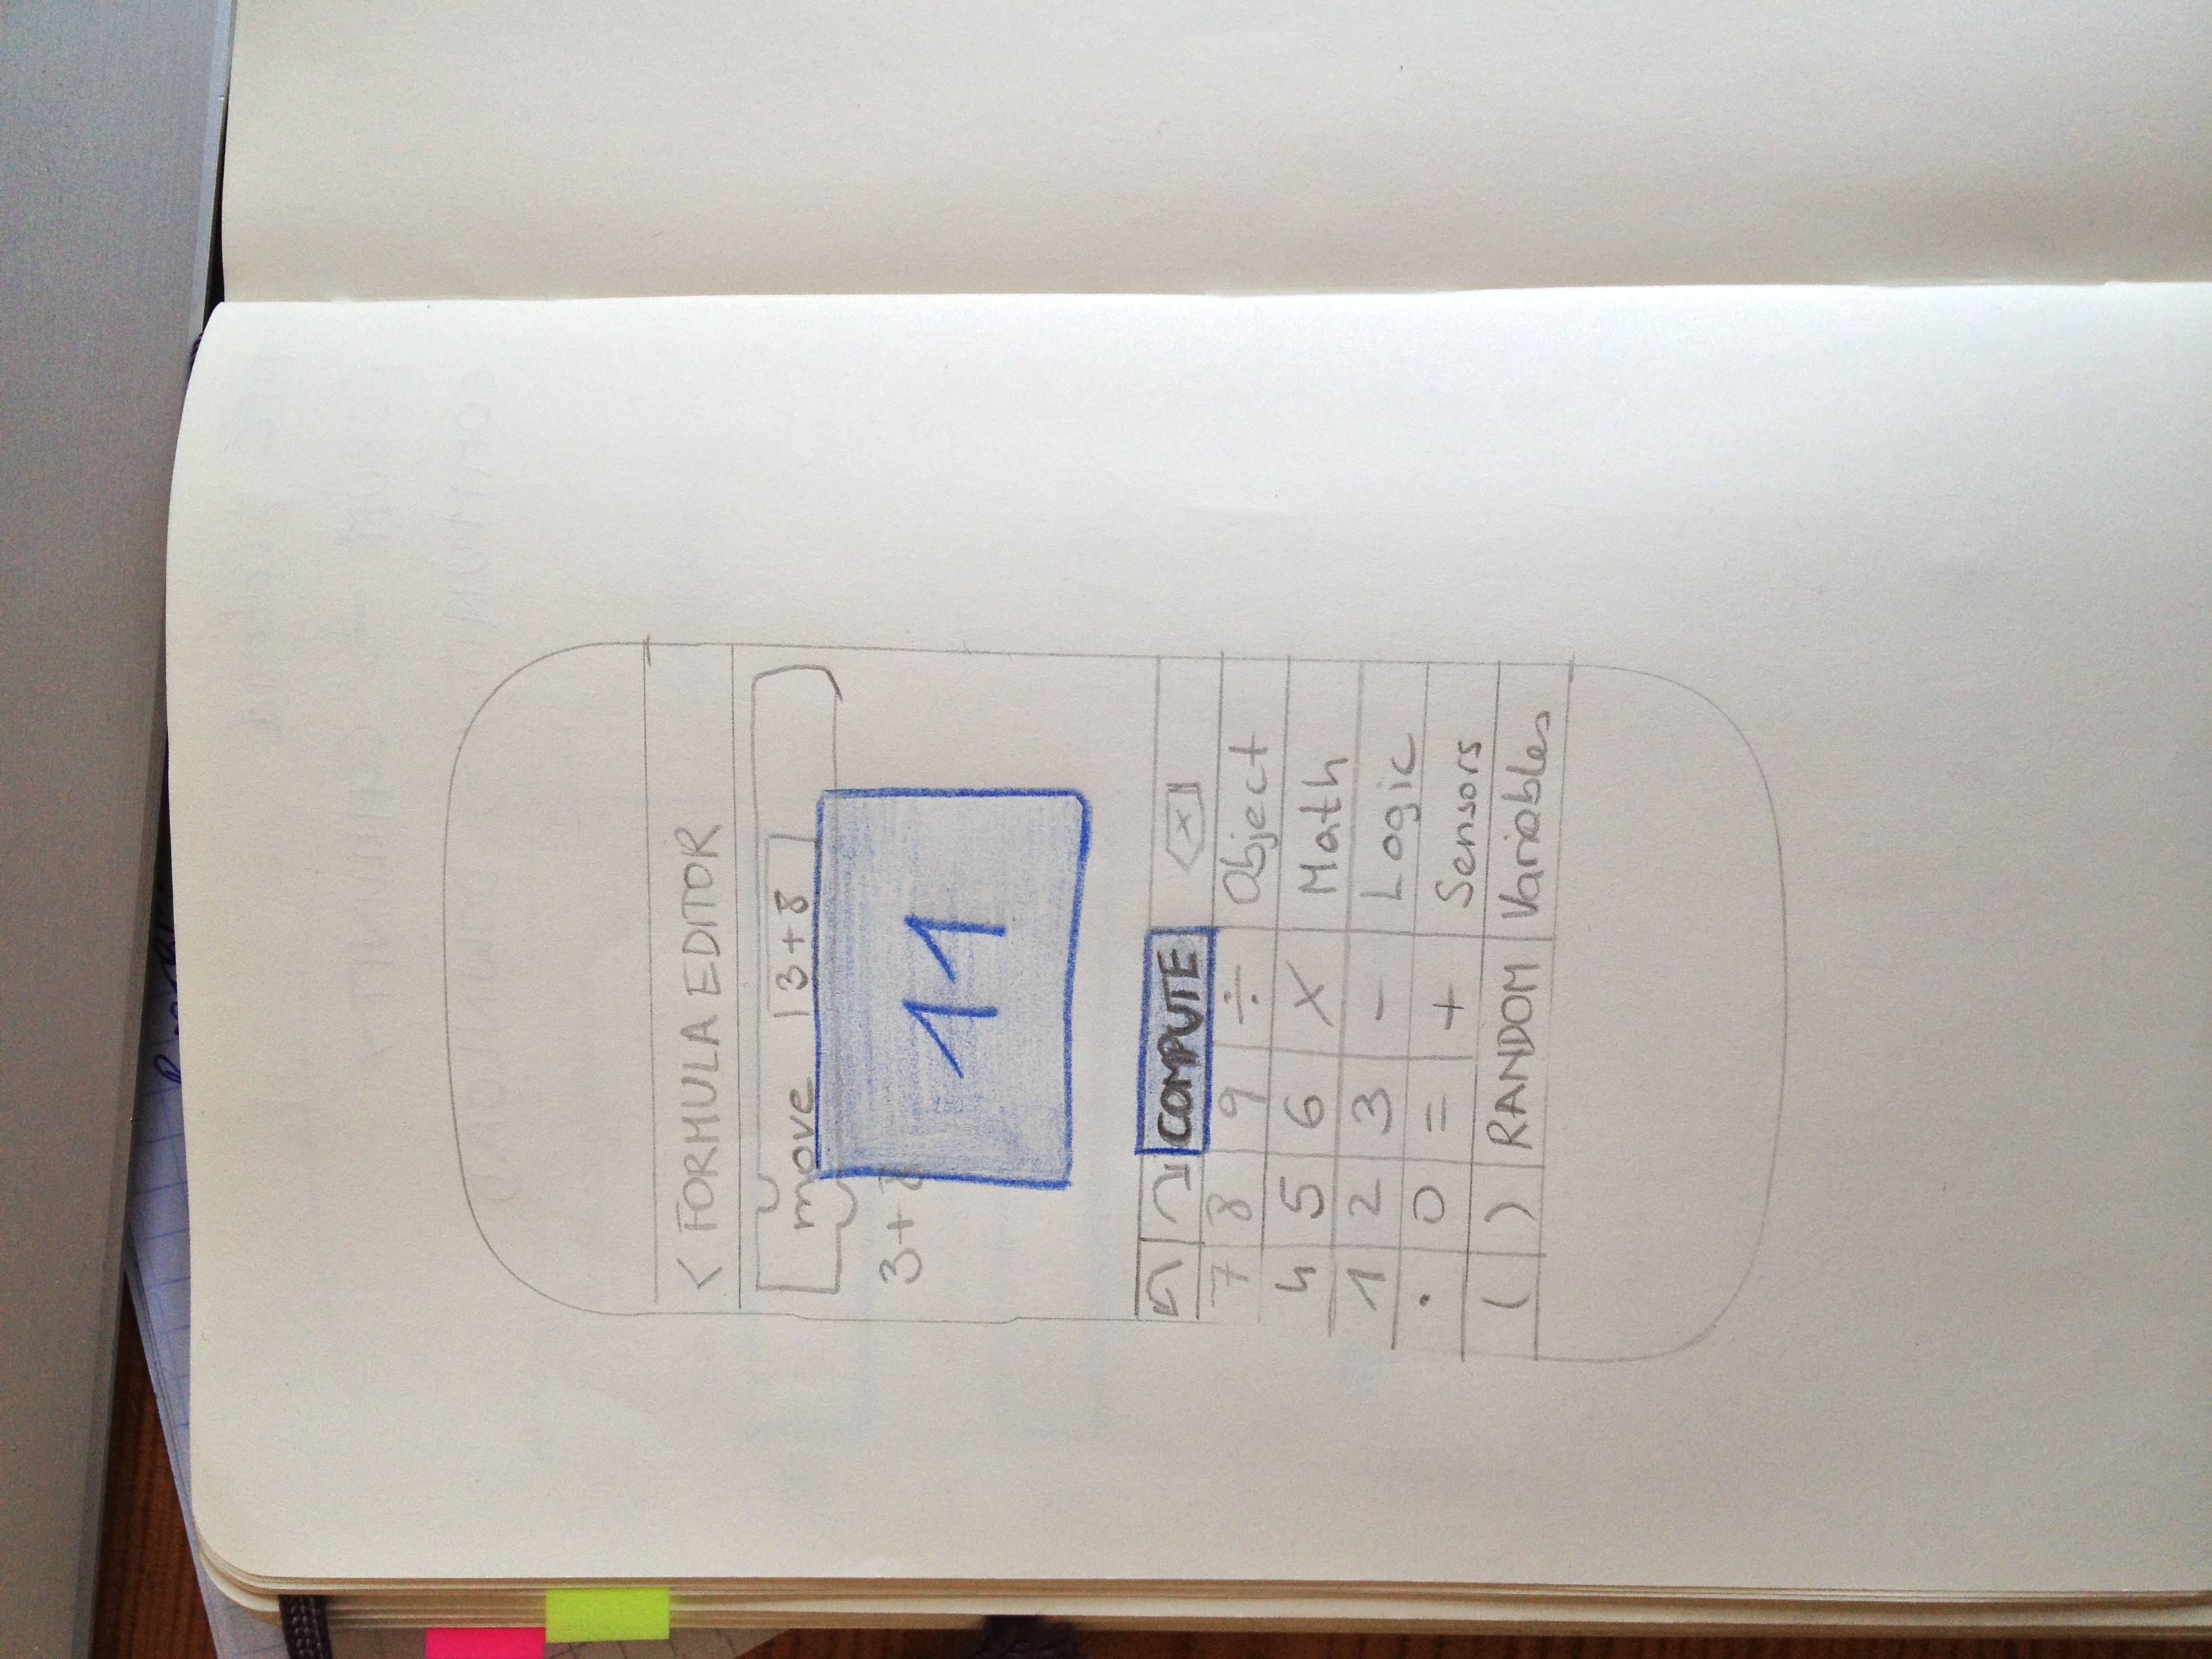 < FORMULA EDITOR
move 3+8
3+8
11
COMPUTE x
7 8 9 ÷ Object
4 5 6 × Math
1 2 3 - Logic
. 0 = + Sensors
( ) RANDOM Variables